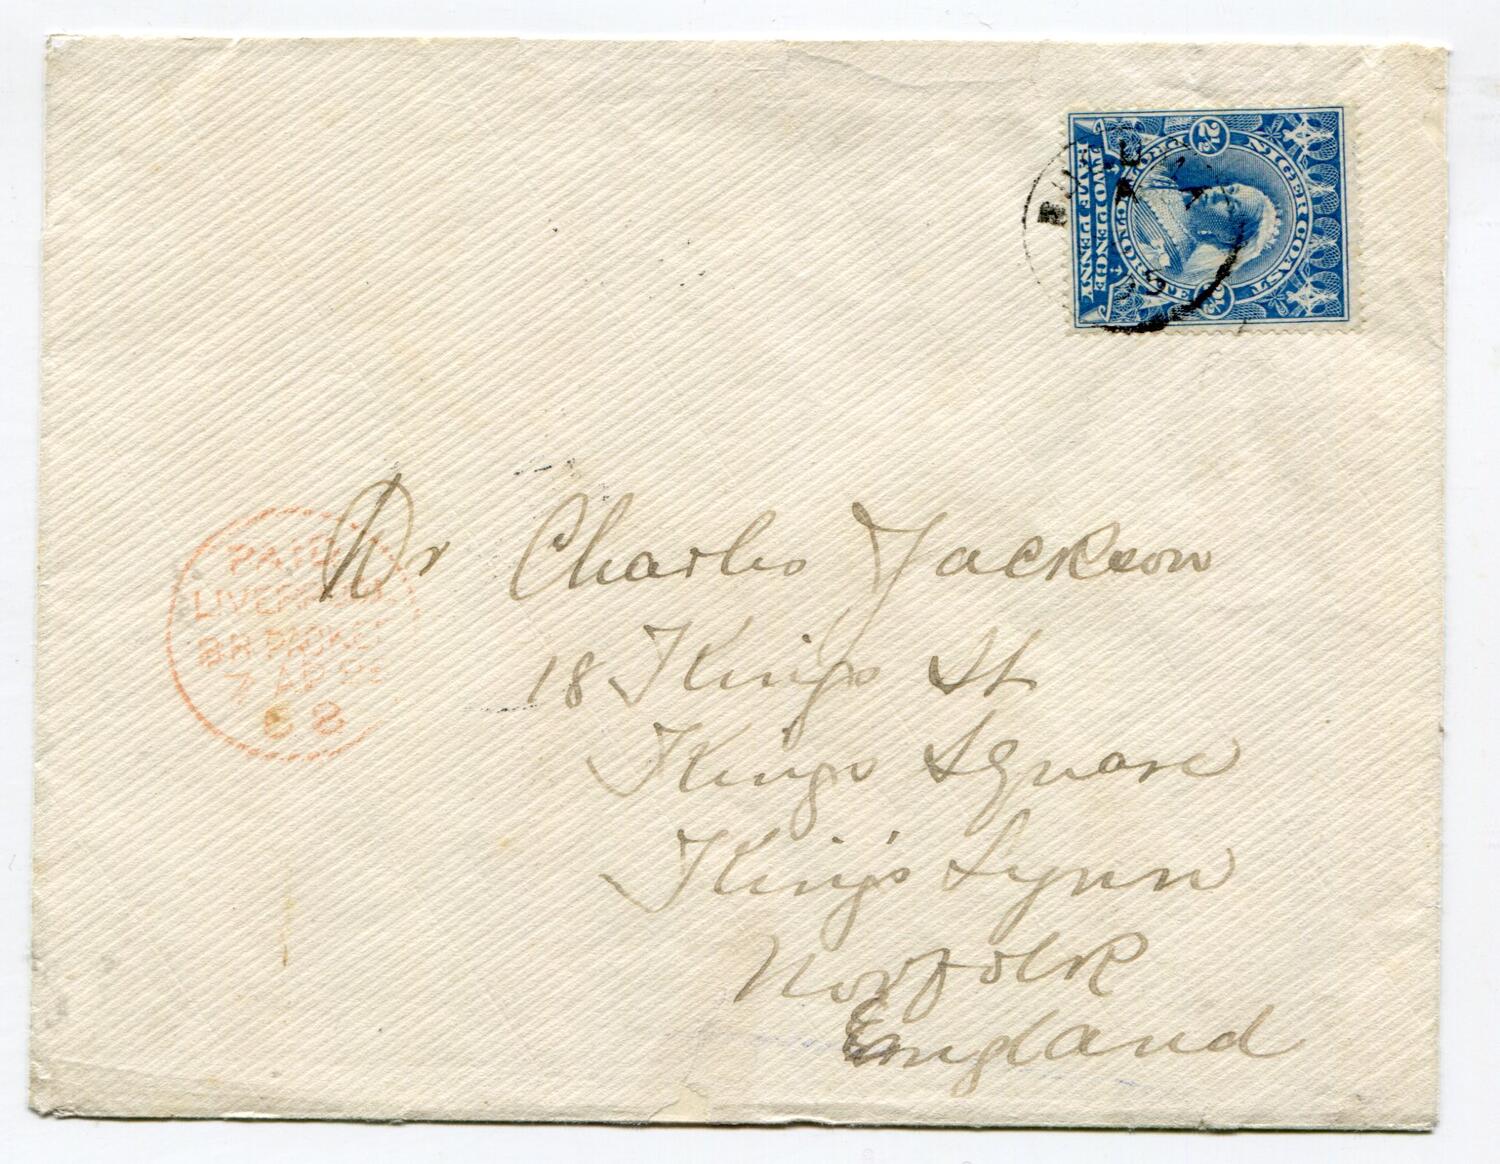 NIGER COAST
PROTECTORATE
2½
2½
TWO PENCE
HALF PENNY
PAID
LIVERPOOL
BR PACKET
7 AP
6 8
Dr Charles Jackson
18 Kings St
Kings Square
King's Lynn
Norfolk
England